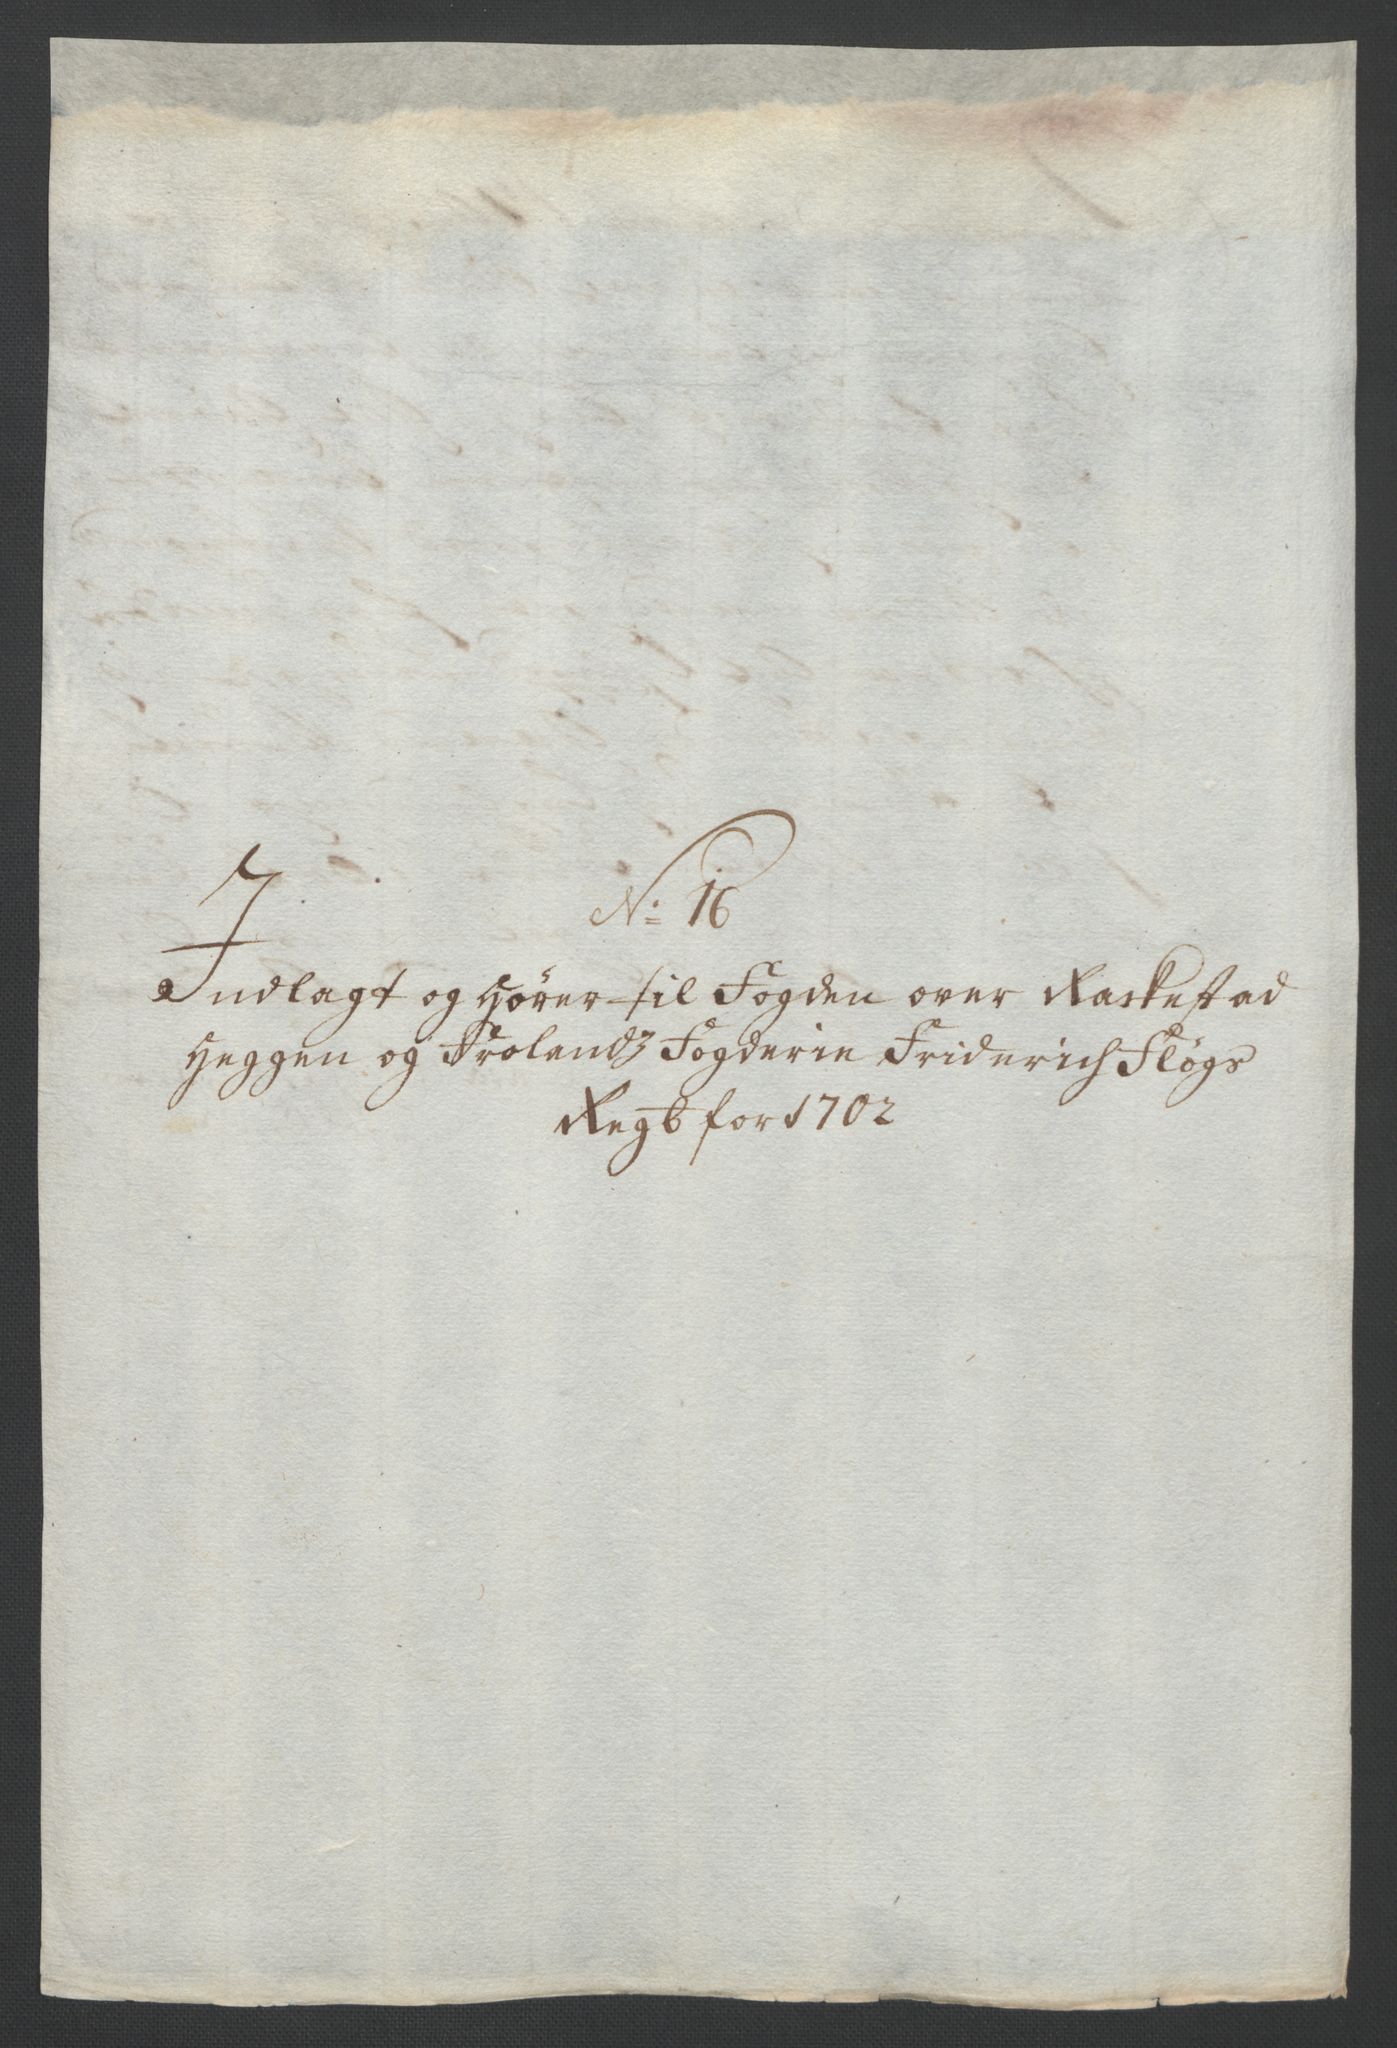 No: 16
Indlagt og Hører til Fogden over Rackestad
Heggen og Frølands Fogderie Friderich Fløgs
Regb for 1702